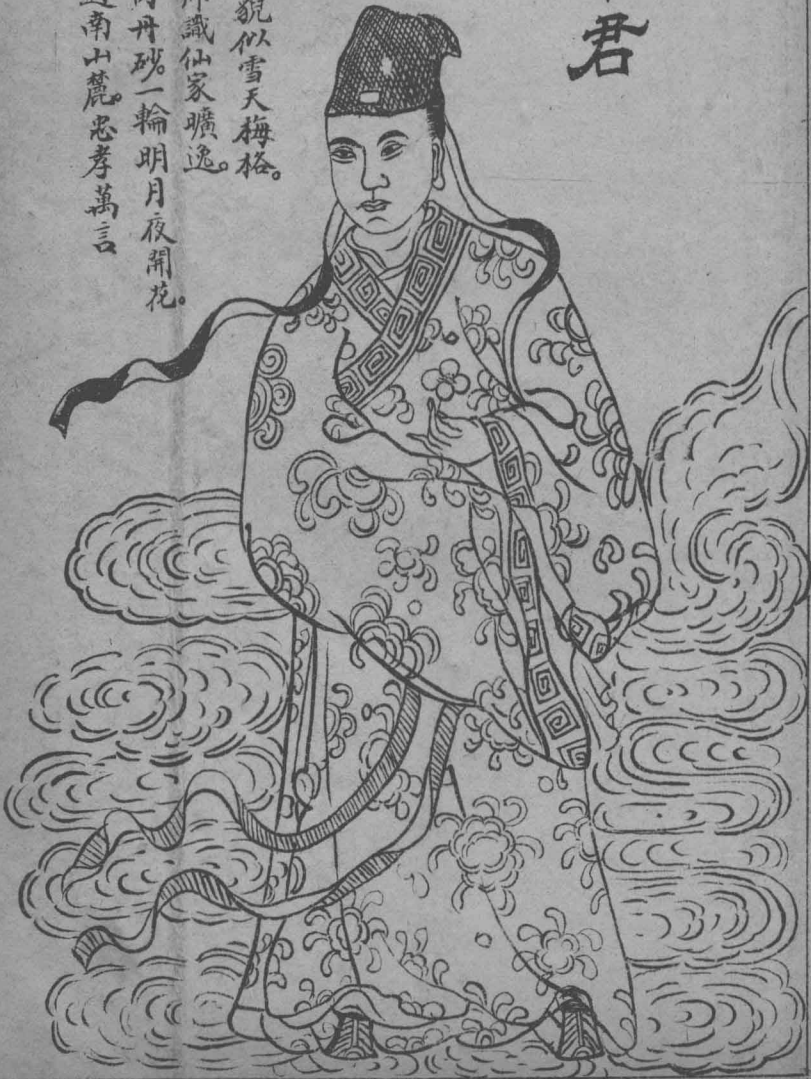 君
貌似雪天梅格。
識仙家曠逸。
丹砂。一輪明月夜開花。
南山麓。忠孝萬言